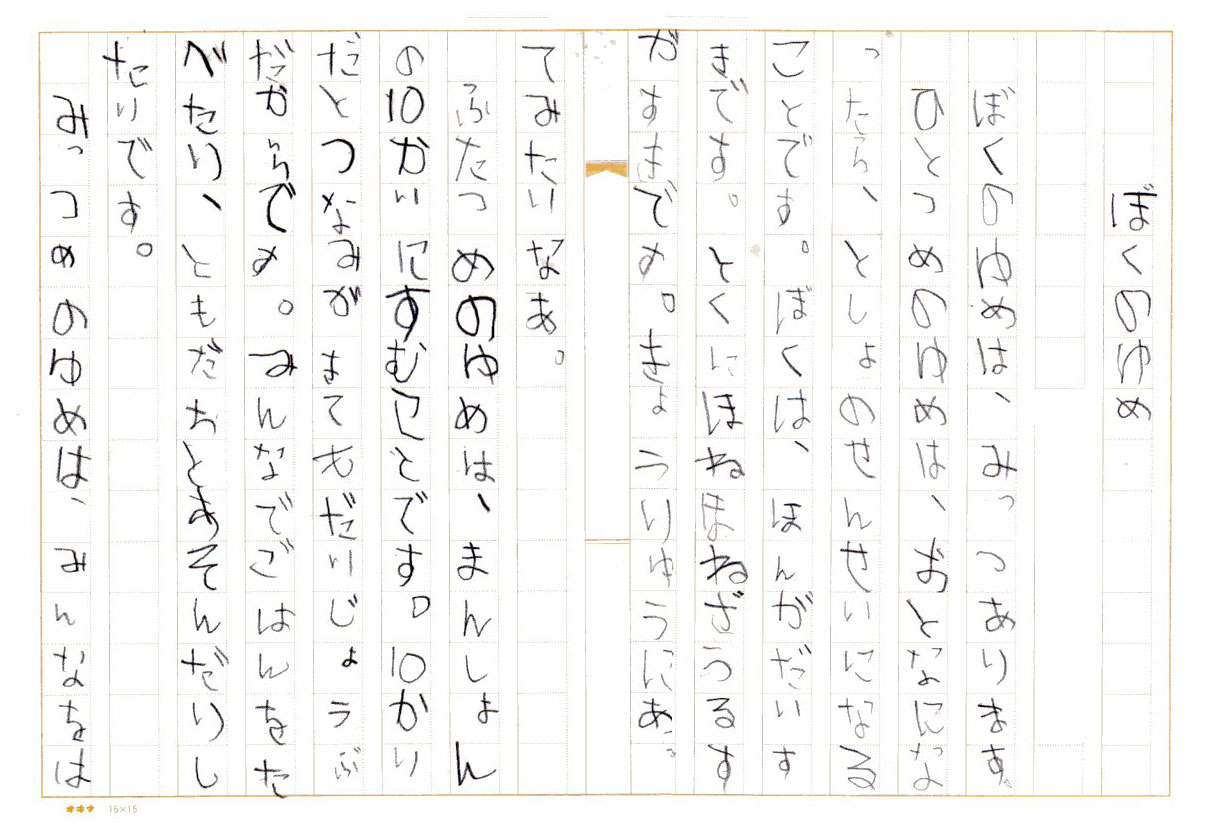 ぼくのゆめ
ぼくのゆめは、みっつあります。
ひとつめのゆめは、おとなにな
ったら、としょのせんせいになる
ことです。ぼくは、ほんがだいす
きです。とくにほねほねざうるす
がすきです。きょうりゅうにあっ
てみたいなあ。
ふたつめのゆめは、まんしょん
の10かいにすむことです。10かい
だとつなみがきてもだいじょうぶ
だからです。みんなでごはんをた
べたり、ともだちとあそんだりし
たいです。
みっつめのゆめは、みんなをは
16×15